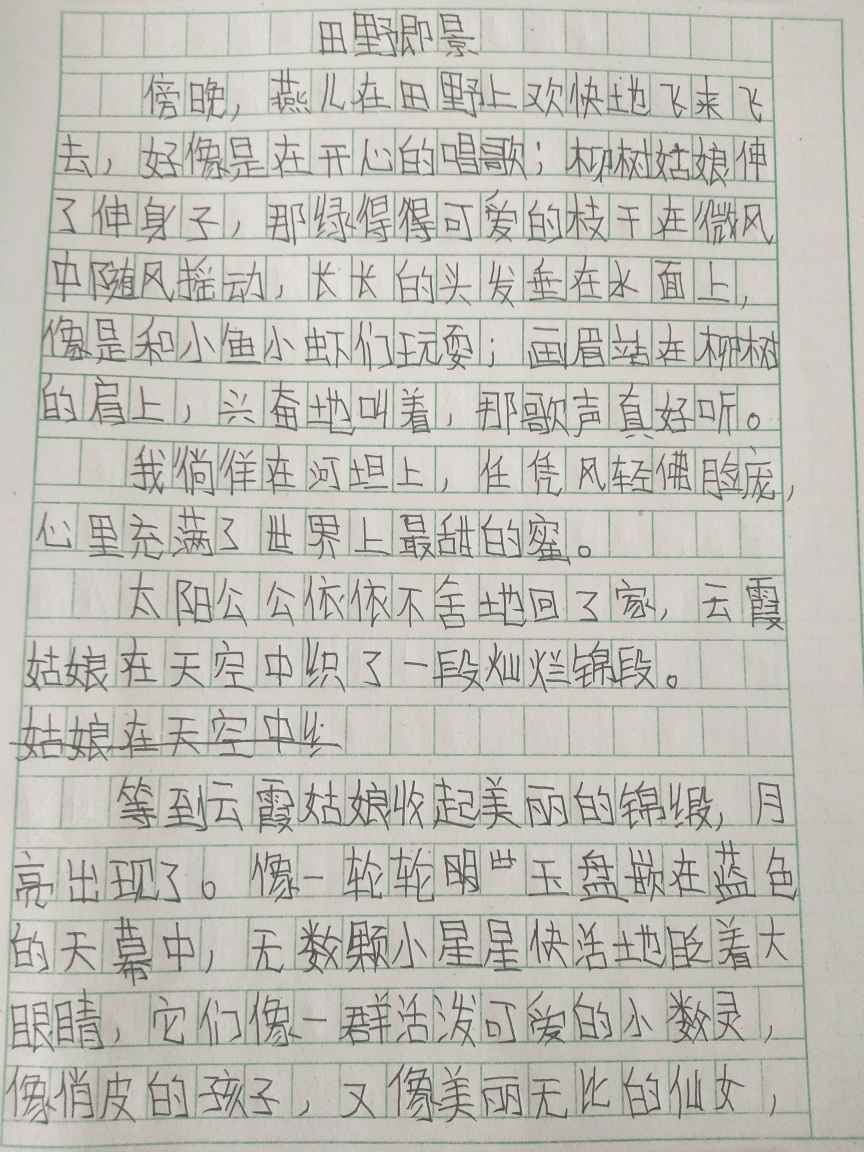 田野即景
傍晚，燕儿在田野上欢快地飞来飞
去，好像是在开心的唱歌；柳树姑娘伸
了伸身子，那绿得得可爱的枝干在微风
中随风摇动，长长的头发垂在水面上，
像是和小鱼小虾们玩耍；画眉站在柳树
的肩上，兴奋地叫着，那歌声真好听。
我徜徉在河坦上，任凭风轻佛脸庞，
心里充满了世界上最甜的蜜。
太阳公公依依不舍地回了家，云霞
姑娘在天空中织了一段灿烂锦段。
姑娘在天空中
等到云霞姑娘收起美丽的锦缎，月
亮出现了。像一轮轮明 玉盘嵌在蓝色
的天幕中，无数颗小星星快活地眨着大
眼睛，它们像一群活泼可爱的小数灵，
像俏皮的孩子，又像美丽无比的仙女，